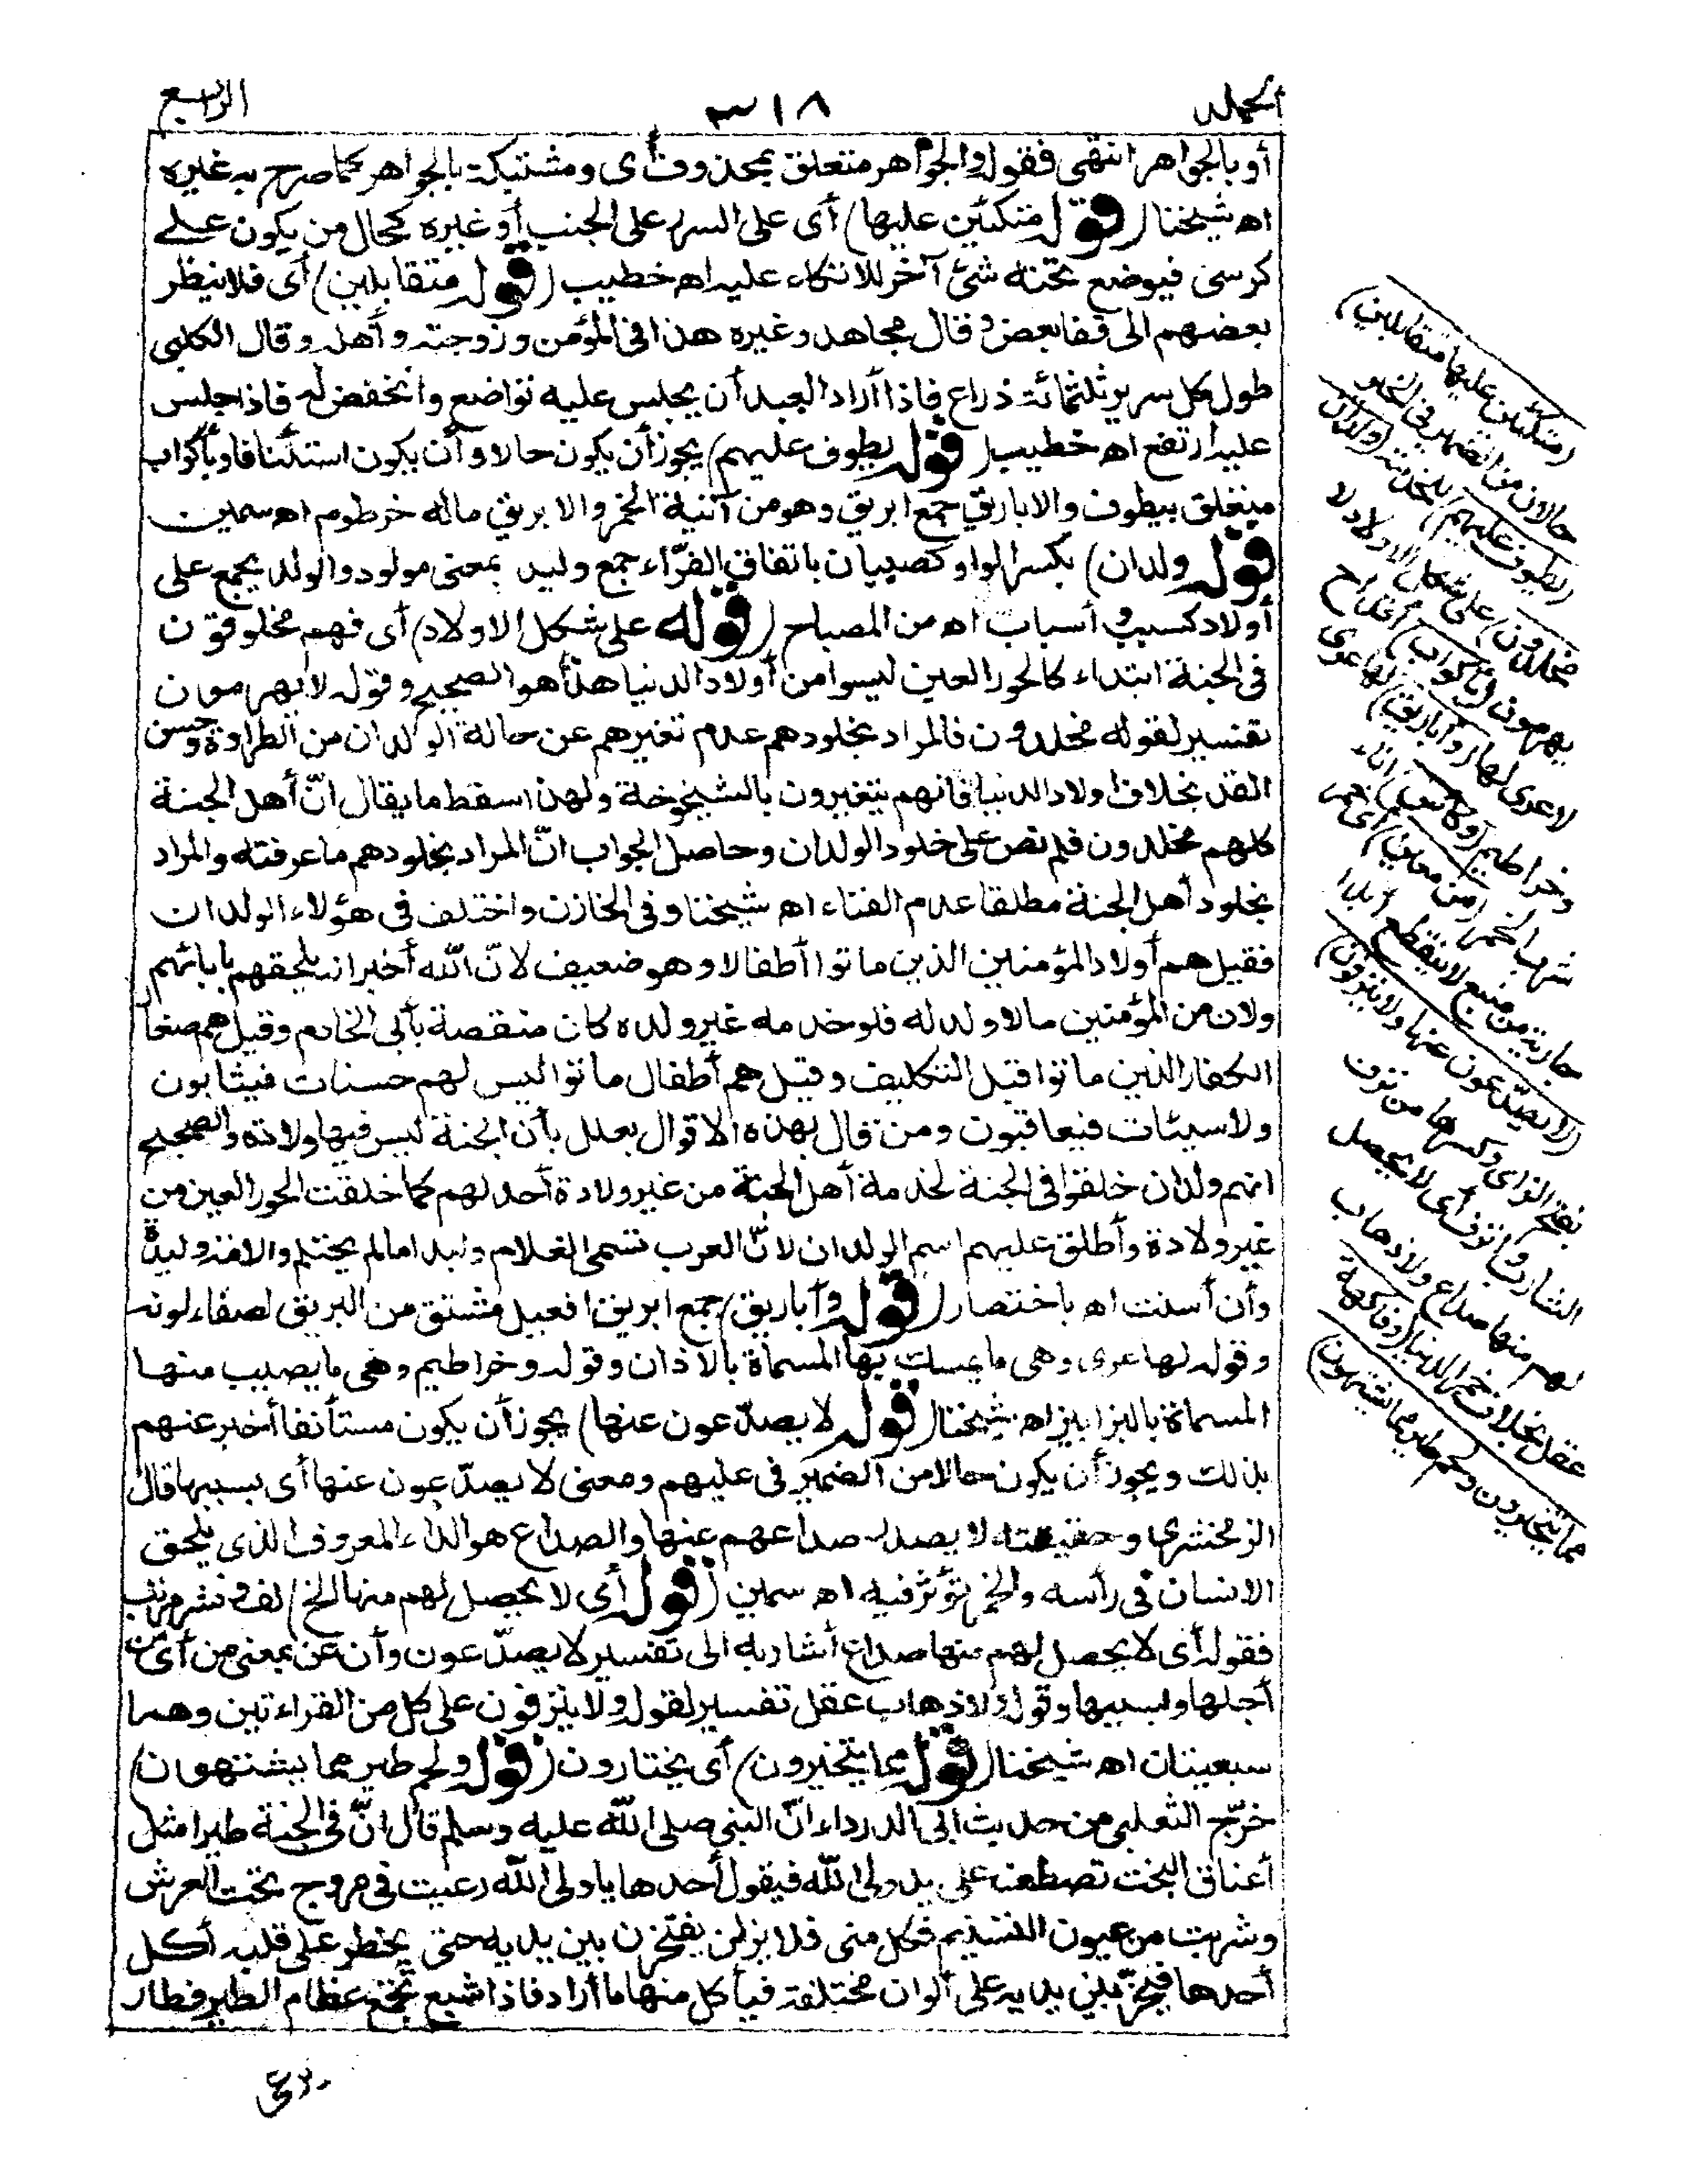 المجلد
٣١٨
الرابع
أو بالجواهر انتهى فقوله والجواهر متعلق بمحذوف أى ومشتبكة بالجواهر كما صرح به غيره
اه شيخنا (قوله متكئين عليها) أى على السرر على الجنب أو غيره كحال من يكون على
كرسى فيوضع تحته شئ آخر للاتكاء عليه اه خطيب (قوله متقابلين) أى فلا ينظر
بعضهم الى قفا بعض وقال مجاهد وغيره هذا فى المؤمن وزوجته وأهله وقال الكلبى
طول كل سرير ثلثمائة ذراع فاذا أراد العبد أن يجلس عليه تواضع وانخفض له فاذا جلس
عليه ارتفع اه خطيب (قوله يطوف عليهم) يجوز أن يكون حالا وأن يكون استئنافا وبأكواب
متعلق بيطوف والاباريق جمع ابريق وهو من آنية الخمر والابريق ماله خرطوم اه سمين
قوله ولدان) بكسر الواو كصبيان باتفاق القرّاء جمع وليد بمعنى مولود والولد يجمع على
أولاد كسبب وأسباب اه من المصباح (قوله على شكل الاولاد) أى فهم مخلوقون
فى الجنة ابتداء كالحور العين ليسوا من أولاد الدنيا هذا هو الصحيح وقوله لا يهرمون
تفسير لقوله مخلدون فالمراد بخلودهم عدم تغيرهم عن حالة الولدان من الطراوة وحسن
القد بخلاف اولاد الدنيا فانهم يتغيرون بالشيخوخة ولهذا سقط ما يقال انّ أهل الجنة
كلهم مخلدون فلم نص على خلود الولدان وحاصل الجواب انّ المراد بخلودهم ما عرفته والمراد
بخلود أهل الجنة مطلقا عدم الفناء اه شيخنا وفى الخازن واختلف فى هؤلاء الولدان
فقيل هم أولاد المؤمنين الذين ماتوا أطفالا وهو ضعيف لانّ اللّه أخبر انه يلحقهم بابائهم
ولان من المؤمنين ما لا ولد له فلو خدمه غير ولده كان منقصة بأبى الخادم وقيل هم صغار
الكفار الذين ماتوا قبل التكليف وقيل هم أطفال ماتوا ليس لهم حسنات فيثابون
ولا سيئات فيعاقبون ومن قال بهذه الاقوال يعلل بأن الجنة ليس فيها ولادة والصحيح
انهم ولدان خلقوا فى الجنة لخدمة أهل الجنة من غير ولادة أحد لهم كما خلقت الحور العين من
غير ولادة وأطلق عليهم اسم الولدان لانّ العرب تسمى الغلام وليدا ما لم يحتلم والامة وليدة
وأن أسنت اه باختصار (قوله وأباريق) جمع ابريق افعيل مشتق من البريق لصفاء لونه
وقوله لها عرى وهى ما يمسك بها المسماة بالاذان وقوله وخراطيم وهى ما يصيب منها
المسماة بالبزابيز اه شيخنا (قوله لا يصدّعون عنها) يجوز أن يكون مستأنفا أخبر عنهم
بذلك ويجوز أن يكون حالا من الضمير فى عليهم ومعنى لا يصدّعون عنها أى بسببها قال
الزمخشرى وحقيقته لا يصدر صداعهم عنها والصداع هو الداء المعروف الذى يلحق
الانسان فى رأسه والخمر تؤثر فيه اه سمين (قوله أى لا يحصل لهم منها الخ) لف ونشر مرتب
فقوله أى لا يحصل لهم منها صداع أشار به الى تفسير لا يصدّعون وأن عن بمعنى من أى من
أجلها وبسببها وقوله ولا ذهاب عقل تفسير لقوله ولا ينزفون على كل من القراءتين وهما
سبعيتان اه شيخنا (قوله مما يتخيرون) أى يختارون (قوله ولحم طير مما يشتهون)
خرّج الثعلبى من حديث ابى الدرداء انّ النبى صلى اللّه عليه وسلم قال انّ فى الجنة طيرا مثل
أعناق البخت تصطف على يد ولى اللّه فيقول أحدها يا ولى اللّه رعيت فى مروج تحت العرش
وشربت من عيون التسنيم فكل منى فلا يزلن يفتخرن بين يديه حتى يخطر على قلبه أكل
أحدها فيخرّ بين يديه على ألوان مختلفة فيأكل منها ما أراد فاذا شبع تجمع عظام الطير فطار
(متكئين عليها متقابلين)
حالان من الضمير فى الخبر
(يطوف عليهم) للخدمة (ولدان
مخلدون) على شكل الاولاد لا
يهرمون (بأكواب) أقداح
لا عرى لها (وأباريق) لها عرى
وخراطيم (وكأس) اناء
شرب الخمر (من معين) أى خمر
جارية من منبع لا ينقطع أبدا
(لا يصدّعون عنها ولا ينزفون)
بفتح الزاى وكسرها من نزف
الشارب وأنزف أى لا يحصل
لهم منها صداع ولا ذهاب
عقل بخلاف خمر الدنيا (وفاكهة
مما يتخيرون ولحم طير مما يشتهون)